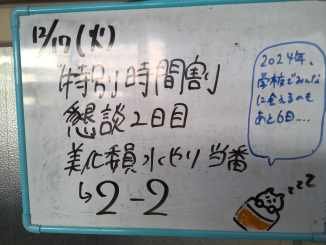 12/17(火)
特別時間割
懇談2日目
美化委員水やり当番
↳2-2
2024年、
学校でみんな
に会えるのも
あと6日...
zzz